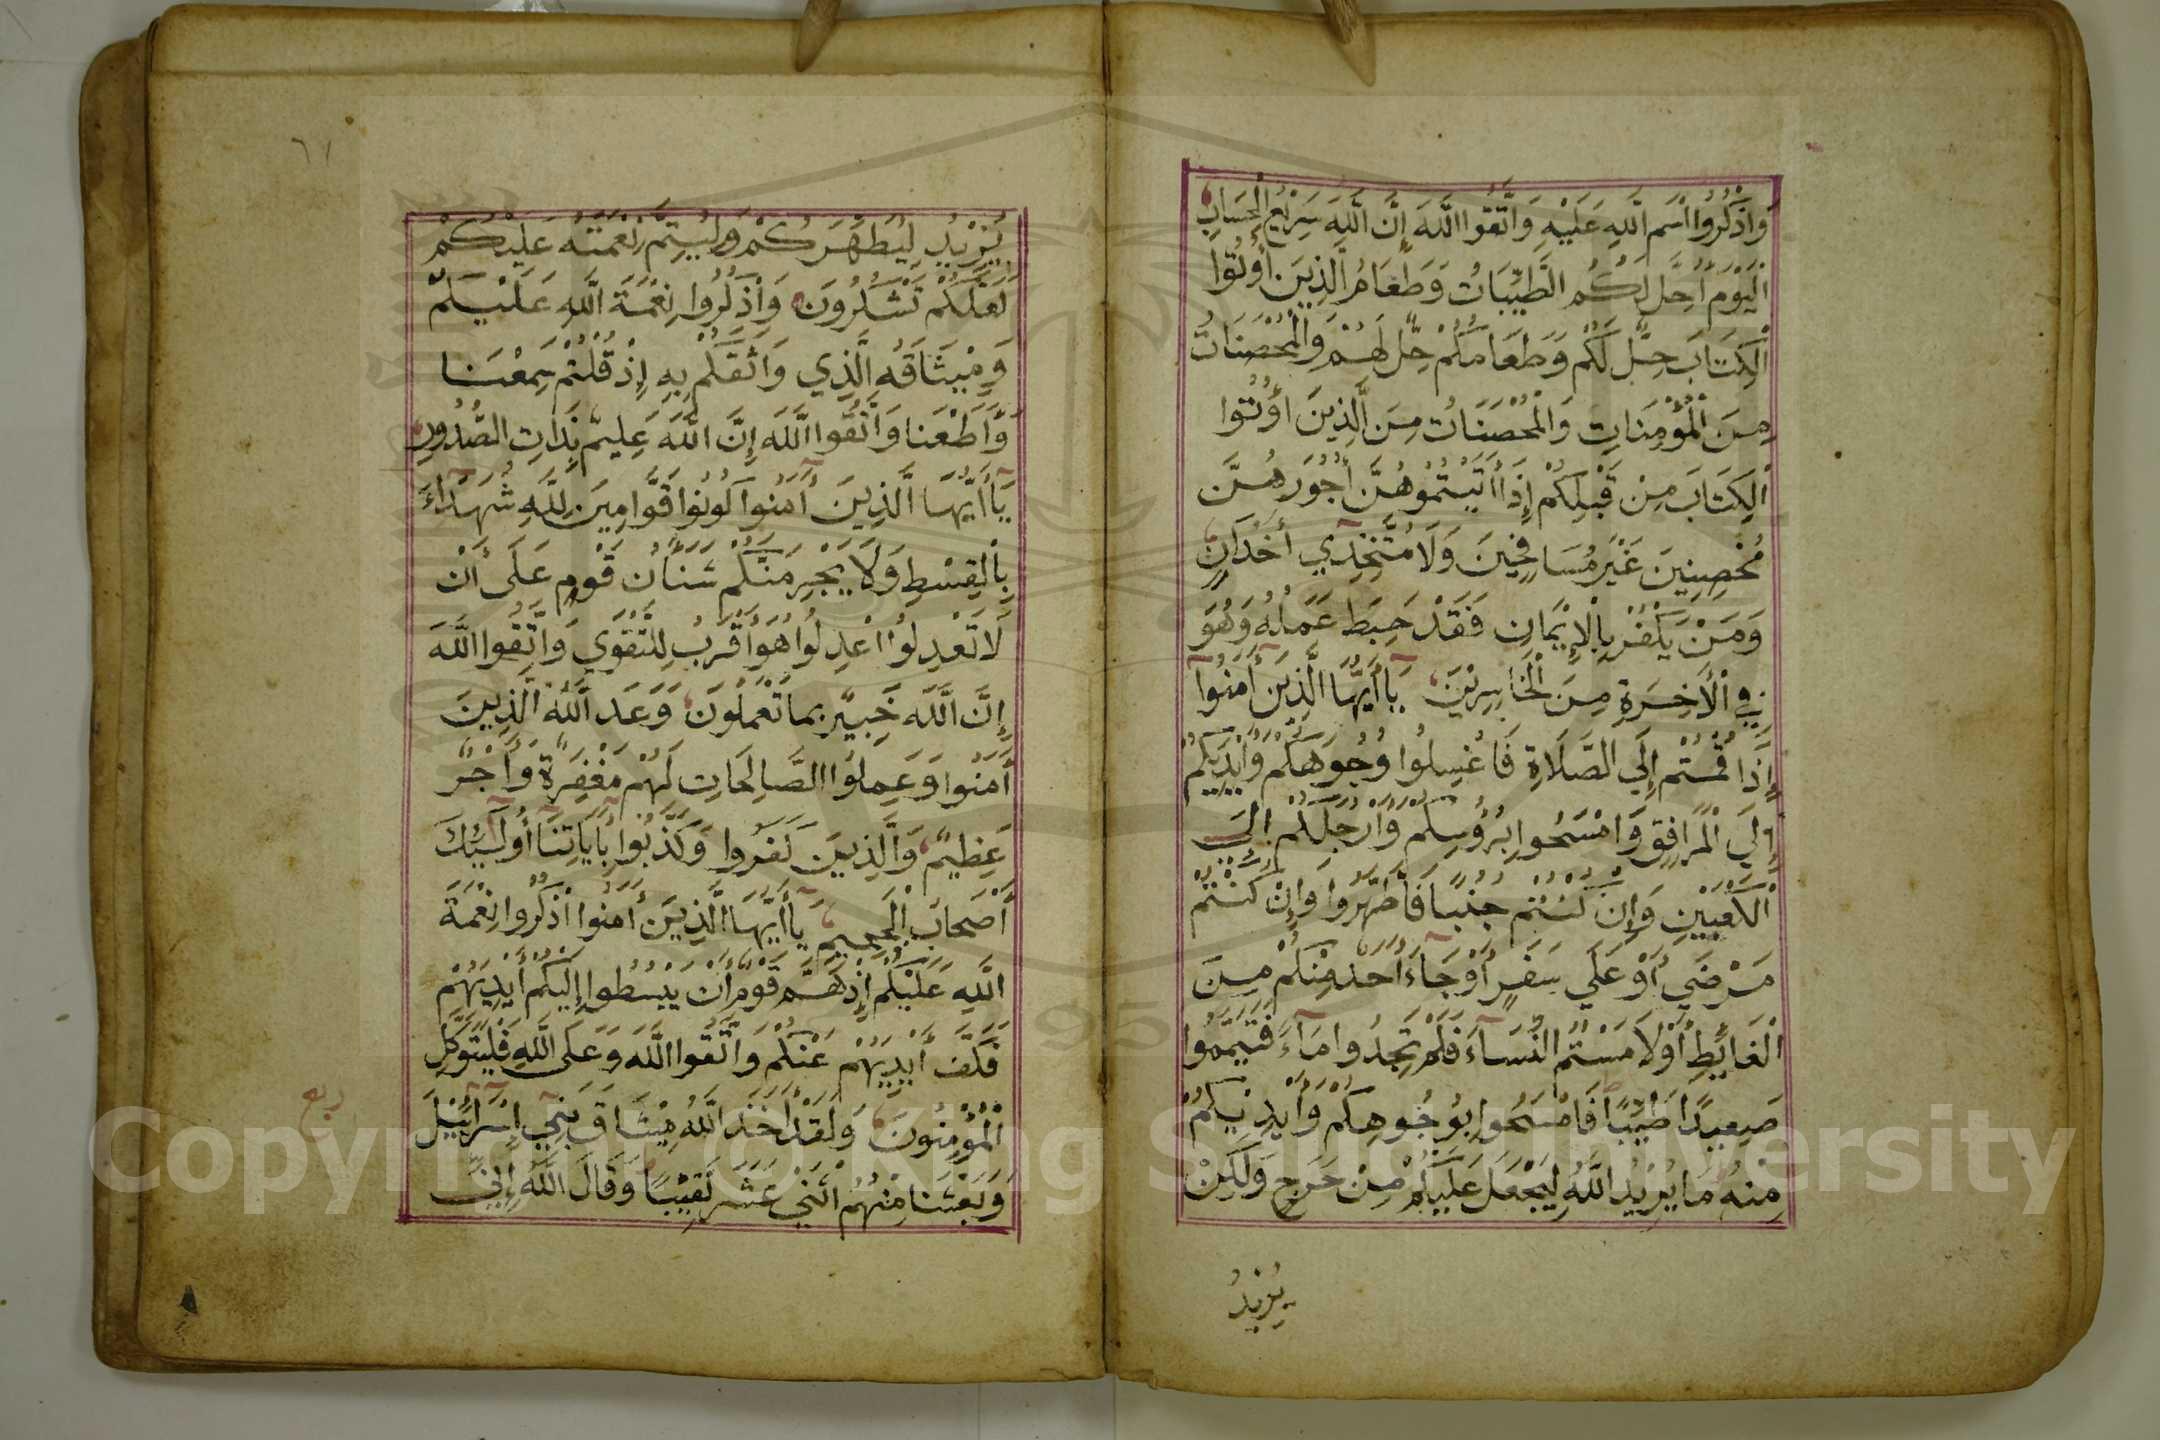 وَاذْكُرُوا اسْمَ اللَّهِ عَلَيْهِ وَاتَّقُوا اللَّهَ إِنَّ اللَّهَ سَرِيْعُ الْحِسَابِ
الْيَوْمَ أُحِلَّ لَكُمُ الطَّيِّبَاتُ وَطَعَامُ الَّذِينَ أُوتُوا
الْكِتَابَ حِلٌّ لَكُمْ وَطَعَامُكُمْ حِلٌّ لَهُمْ وَالْمُحْصَنَاتُ
مِنَ الْمُؤْمِنَاتِ وَالْمُحْصَنَاتُ مِنَ الَّذِينَ أُوتُوا
الْكِتَابَ مِنْ قَبْلِكُمْ إِذَا أَتَيْتُمُوهُنَّ أُجُورَهُنَّ
مُحْصِنِينَ غَيْرَ مُسَافِحِينَ وَلَا مُتَّخِذِي أَخْدَانٍ
وَمَنْ يَكْفُرْ بِالْإِيْمَانِ فَقَدْ حَبِطَ عَمَلُهُ وَهُوَ
فِي الْأَخِرَةِ مِنَ الْخَاسِرِيْنَ يَا أَيُّهَا الَّذِينَ أَمَنُوا
إِذَا قُمْتُمْ إِلَي الصَّلَاةِ فَاغْسِلُوا وُجُوهَكُمْ وَأَيْدِيَكُمْ
إِلَي الْمَرَافِقِ وَامْسَحُوا بِرُؤُسِكُمْ وَأَرْجُلَكُمْ إِلَي
الْكَعْبَيْنِ وَإِنْ كُنْتُمْ جُنُبًا فَاطَّهَّرُوا وَإِنْ كُنْتُمْ
مَرْضَي أَوْ عَلَي سَفَرٍ أَوْ جَاءَ أَحَدٌ مِنْكُمْ مِنَ
الْغَايِطِ أَوْ لَامَسْتُمُ النِّسَاءَ فَلَمْ تَجِدُوا مَاءً فَتَيَمَّمُوا
صَعِيدًا طَيِّبًا فَامْسَحُوا بِوُجُوهِكُمْ وَأَيْدِيْكُمْ
مِنْهُ مَا يُرِيْدُ اللَّهُ لِيَجْعَلَ عَلَيْكُمْ مِنْ حَرَجٍ وَلَكِنْ
يُرِيْدُ
٦١
يُرِيْدُ لِيُطَهِّرَكُمْ وَلِيُتِمَّ نِعْمَتَهُ عَلَيْكُمْ
لَعَلَّكُمْ تَشْكُرُونَ وَاذْكُرُوا نِعْمَةَ اللَّهِ عَلَيْكُمْ
وَمِيْثَاقَهُ الَّذِي وَاثَقَكُمْ بِهِ إِذْ قُلْتُمْ سَمِعْنَا
وَأَطَعْنَا وَاتَّقُوا اللَّهَ إِنَّ اللَّهَ عَلِيمٌ بِذَاتِ الصُّدُورِ
يَا أَيُّهَا الَّذِينَ أَمَنُوا كُونُوا قَوَّامِينَ لِلَّهِ شُهَدَاءَ
بِالْقِسْطِ وَلَا يَجْرِمَنَّكُمْ شَنَأَنُ قَوْمٍ عَلَى أَنْ
لَا تَعْدِلُوا اعْدِلُوا هُوَ أَقْرَبُ لِلتَّقْوَي وَاتَّقُوا اللَّهَ
إِنَّ اللَّهَ خَبِيْرٌ بِمَا تَعْمَلُونَ وَعَدَ اللَّهُ الَّذِينَ
أَمَنُوا وَعَمِلُوا الصَّالِحَاتِ لَهُمْ مَغْفِرَةٌ وَأَجْرٌ
عَظِيْمٌ وَالَّذِينَ كَفَرُوا وَكَذَّبُوا بِأَيَاتِنَا أُولَئِكَ
أَصْحَابُ الْجَحِيمِ يَا أَيُّهَا الَّذِينَ أَمَنُوا اذْكُرُوا نِعْمَةَ
اللَّهِ عَلَيْكُمْ إِذْ هَمَّ قَوْمٌ أَنْ يَبْسُطُوا إِلَيْكُمْ أَيْدِيَهُمْ
فَكَفَّ أَيْدِيَهُمْ عَنْكُمْ وَاتَّقُوا اللَّهَ وَعَلَى اللَّهِ فَلْيَتَوَكَّلِ
ربع
الْمُؤْمِنُونَ وَلَقَدْ أَخَذَ اللَّهُ مِيْثَاقَ بَنِي إِسْرَائِيْلَ
وَبَعَثْنَا مِنْهُمُ اثْنَيْ عَشَرَ نَقِيْبًا وَقَالَ اللَّهُ إِنِّي
Copyright © King Saud University